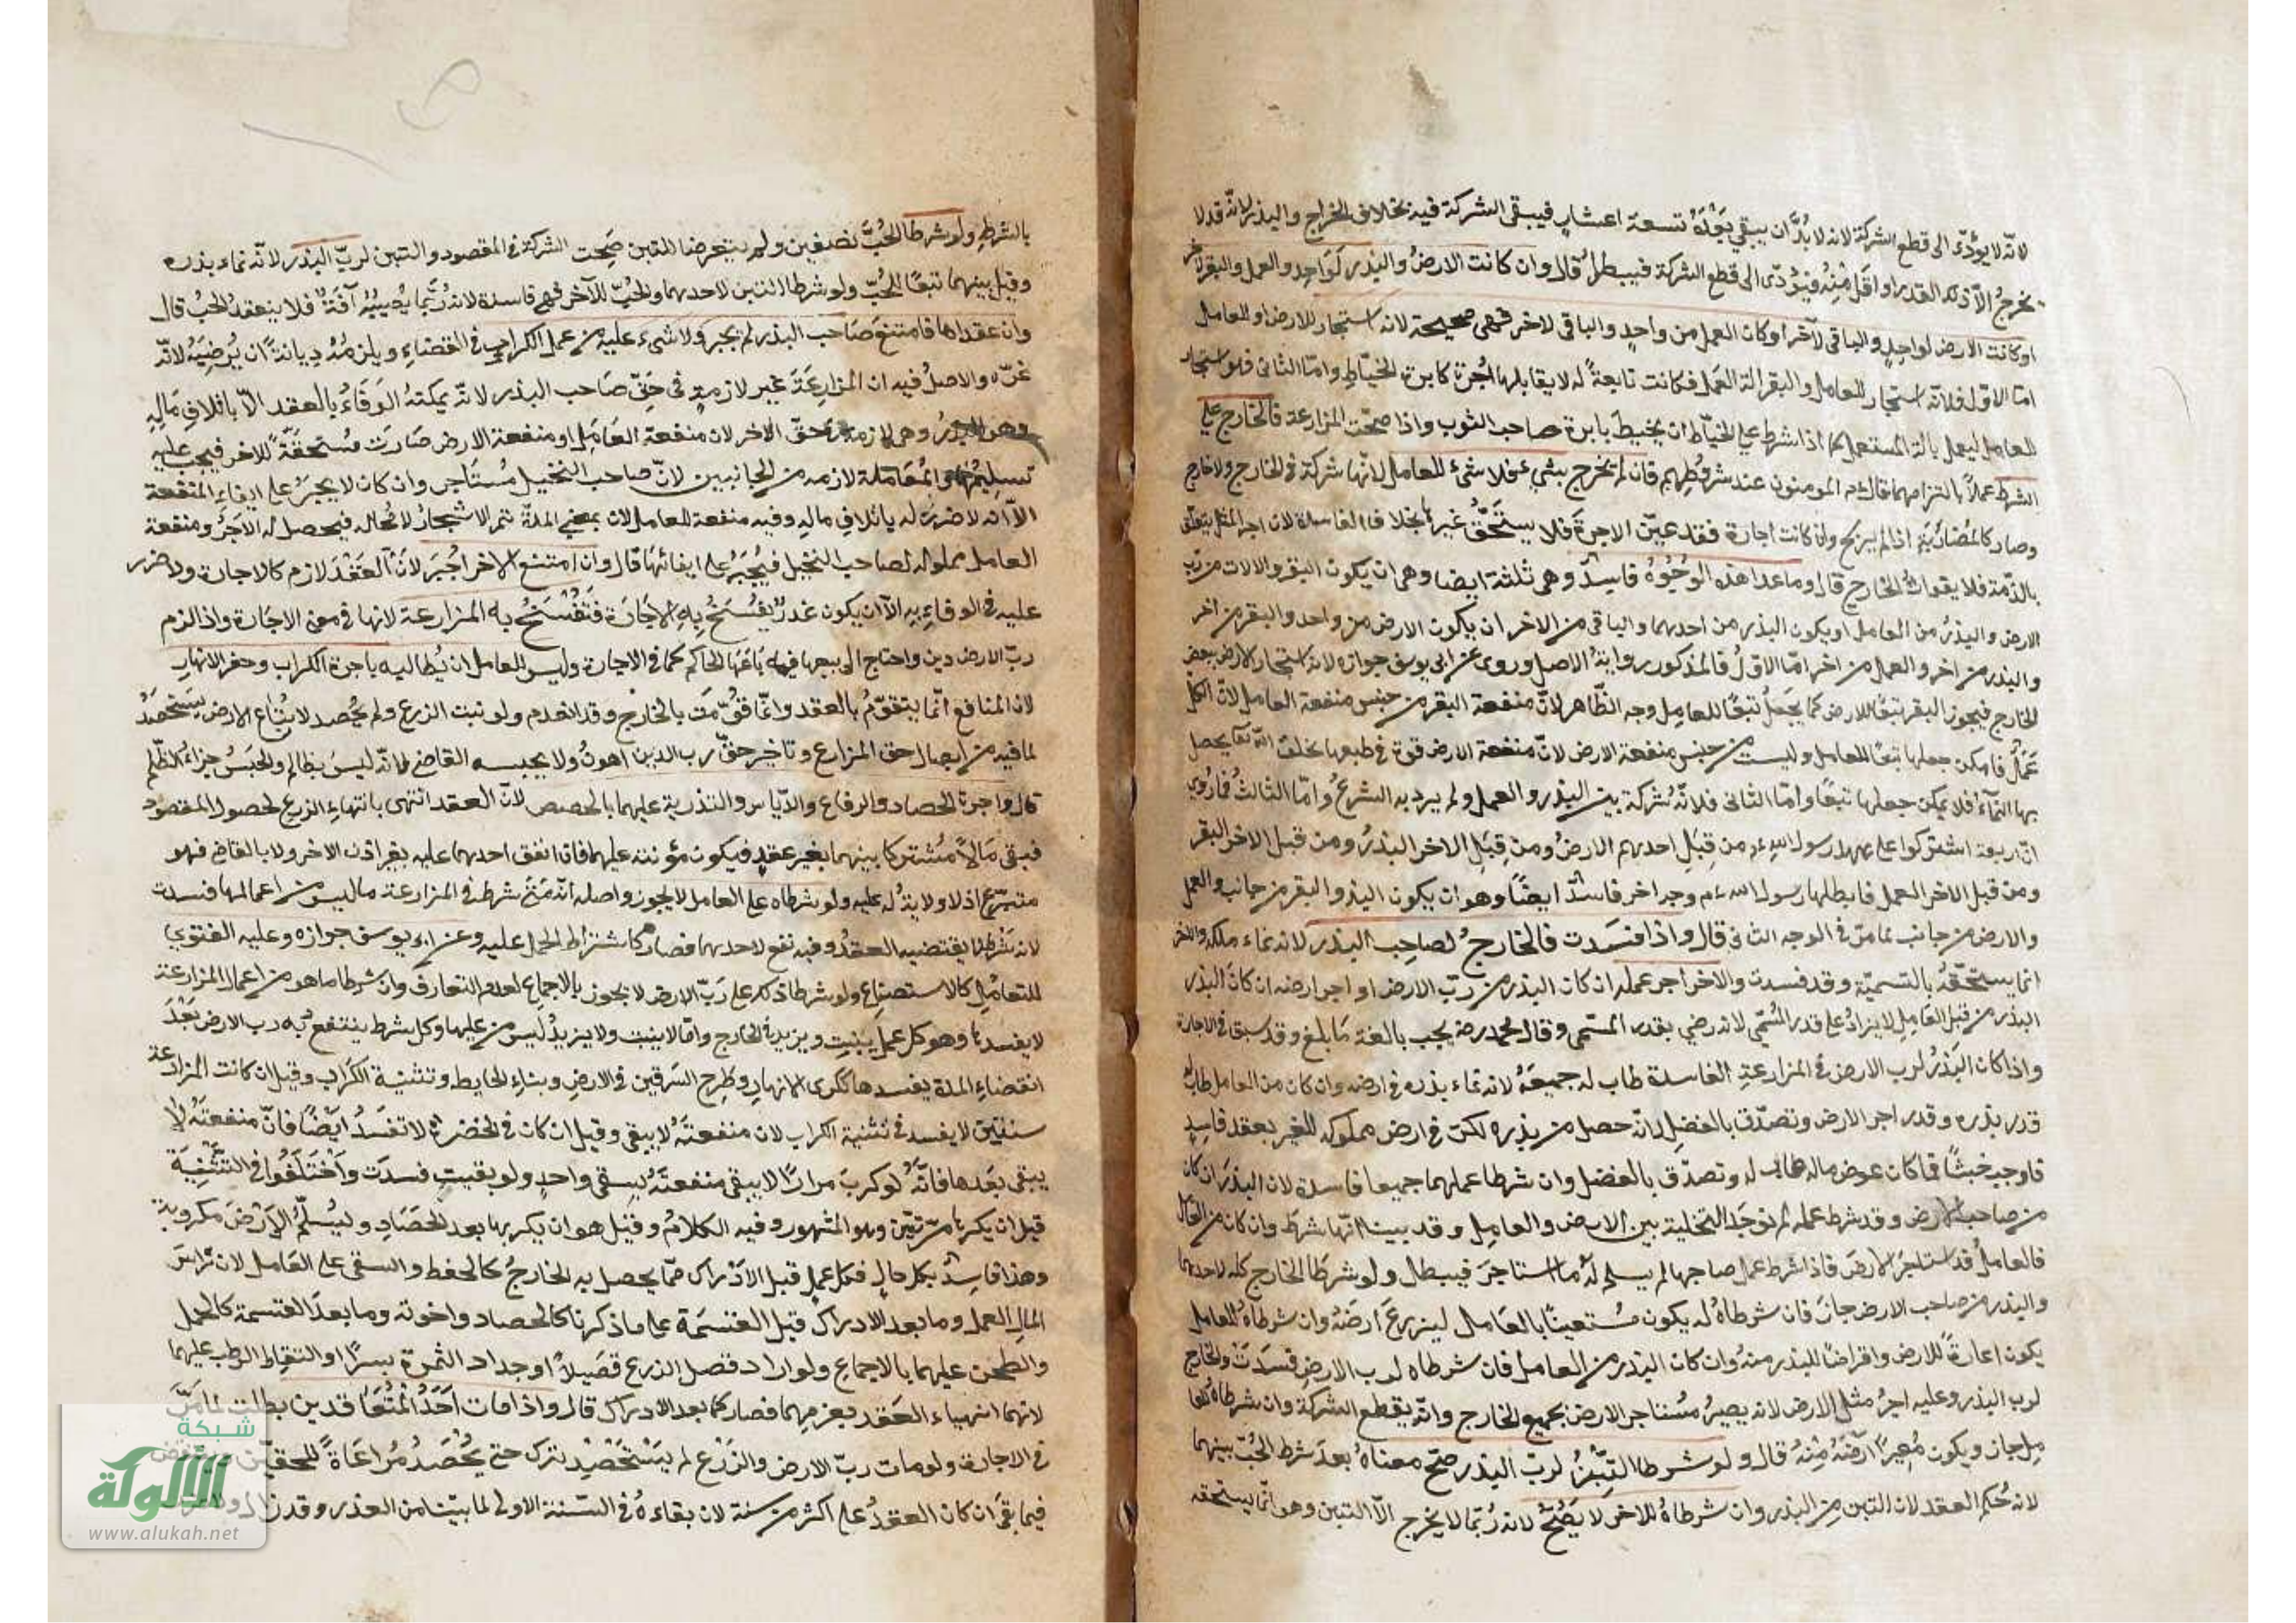 لانه لا يؤدّي الى قطع الشركة لانه لا بُدَّ ان يبقي بَعْدَهُ تسعة اعشارٍ فيبقى الشركة فيه بخلاف الخراج والبذر لانه قد لا
يخرجُ الاّ ذلك القدر او اقل مِنْهُ فيؤدّى الى قطع الشركة فيبطل قال وان كانت الارضُ والبذر لواحِدٍ والعمل والبقر لاخر
او كانت الارض لواحِدٍ والباقى لآخر او كان العمل من واحدٍ والباقى لاخر فهى صحيحة لانه استيجار للارض او للعامل
امّا الاوّل فلانّه استيجار للعامل والبقر الة العمل فكانت تابعةً له لا يقابلها اُجرة كابرة الخيّاطِ وامّا الثانى فلو استيجار
للعامل ليعمل بالة المستعمل كما اذا شرط على الخيّاط ان يخيط بابرة صاحب الثوب واذا صحّت المزارعة فالخارج على
الشرط عملاً بالتزامهما قال المومنون عند شروطهم فان لم يخرج شيء فلا شيء للعامل لانّها شركة فى الخارج ولا خارج
وصار كالمضاربة اذا لم يربح وان كانت اجارة فقد عيّن الاجرة فلا يستَحَقُّ غيرها بخلاف الفاسدة لان اجر المثل يتعلق
بالذّمة فلا يفوات الخارج قال وما عدا هذه الوجُوُهُ فاسدٌ وهى ثلثة ايضا وهى ان يكون البقر والالات من ربّ
الارض والبذرُ من العامل او يكون البذر من احدهما والباقى من الاخر ان يكون الارض من واحد والبقر من اخر
والبذر من اخر والعمل من اخر امّا الاوّلُ فالمذكور روايةُ الاصل وروى عن ابى يوسف جوازه لانه استيجار الارض ببعض
الخارج فيجوز البقر تبعًا للارض كما يجعلُ تبعًا للعامِل وجه الظّاهر لانّ منفعة البقر من جنس منفعة العامل لانّ الكلّ
عَمَلٌ فامكن جعلها تبعًا للعامل وليست من جنس منفعة الارض لانّ منفعة الارض قوة فى طبعها بخلق الله تعا يحصل
بها النماءُ فلا يمكن جعلها تبعًا وامّا الثانى فلانّه شركة بين البذر والعمل ولم يرد به الشرعُ وامّا الثالث فما رُوى
انّ اربعة اشتركوا على عهد رسول الله من قِبَل احدهم الارضُ ومن قِبَلِ الاخر البذرُ ومن قبل الاخر البقر
ومن قبل الاخر العمل فابطلها رسول الله وجه اخر فاسدٌ ايضًا وهو ان يكون البذر والبقر من جانب والعمل
والارض من جانب لما مرّ فى الوجه الثانى قال واذا فسَدت فالخارجُ لصاحب البذر لانه نماء ملكه والاخر
انما يستحقّهُ بالتسميّة وقد فسدت والاخر اجر عمله ان كان البذر من ربّ الارض او اجر ارضه ان كان البذر
البذر من قبل العامِل لا يزادُ على قدر المُسَمّى لانه رضي بقدر المسّمى وقال محمد رضه يجب بالغة مَا بلغ وقد سبق فى الاجارة
واذا كان البَذرُ لرب الارض فى المزارعةِ الفاسدة طاب له جميعَهُ لانه نماء بذره فى ارضه وان كان من العامل طاب له
قدر بذره وقدر اجر الارض وتصدّق بالفضل لانّه حصل من بذره لكن فى ارض مملوكه للغير بعقد فاسِدٍ
فاوجب خبثًا فما كان عوض ماله طاب له وتصدّق بالفضل وان شرطا عملهما جميعا فاسدة لان البذرَ ان كان
من صاحب الارض وقد شرط عمله لم توجَد التخلية بين الارض والعامِل وقد بينا انّها شرطَ وان كان من العامل
فالعاملُ قد استاجَرَ الارضَ فاذا شرط عمل صاحبها لم يسلم له ما استاجرَ فيبطل ولو شرطَا الخارج كله لاحدهما
والبذر من صاحب الارض جازَ فان شرطاهُ له يكون مُستعينًا بالعَامل ليزرعَ ارضَهُ وان شرطاهُ للعامل
يكون اعارةً للارض واقراضًا للبذر منهُ وان كان البذر من العامل فان شرطاه لرب الارض فسَدَت والخارج
لرب البذر وعليه اجرُ مثل الارض لانه يصيرُ مُستاجر الارض بجميع الخارج وانّه يقطع الشركة وان شرطاهُ للعا
مِل جاز ويكون مُعِيرًا ارضَهُ مِنْهُ قال ولو شرطا التِّبْنُ لربّ البذر صحّ معناهُ بعدَ شرط الحُبّ بينهما
لانه حُكم العقد لان التبن مِن البذر وان شرطاهُ للاخر لا يَصُحُّ لانه رُبّمَا لا يخرج الاّ التبن وهو انّما يستحقّه
بالشرطِ ولو شرطا الحُبَّ نصفين ولم يتعرضا للتبن صَحِّت الشركة فى المقصود والتبن لربّ البذر لانّه نماء بذره
وقيل بينهما تبعًا للحُبّ ولو شرطا التبن لاحدهما والحُبّ للآخر فهى فاسدة لانه رُبّمَا يُصِيبُهُ آفَةٌ فلا ينعقد الحبُ قال
وان عقداها فامتنعَ صَاحب البذر لم يجبر ولا شىء عليه من عمل الكراب فى القضاءِ ويلزمهُ دِيانةً ان يُرضِيَهُ لانّه
غرّه والاصلُ فيه ان المزارعَةَ غير لازمةٍ فى حَقّ صَاحب البذر لانّه يمكنهُ الوَفَاءُ بالعقد الاّ باتلافِ مَالِهِ
وهو البذرُ وهى لازمة فى حقّ الاخر لان منفعة العَامِل او منفعة الارض صَارَت مُستحقّة للاخر فيجب عليه
تسلِيمُها والمُعَاملة لازمه من الجانبين لانّ صاحب النخيل مُستَاجر وان كان لا يجبرُ على ايفاءِ المنفعة
الاّ انه لا ضرر له باتلافِ مالِهِ وفيه منفعة للعامل لان بمضي المدّة تثمر الاشجارُ لا محاله فيحصل له الاجرُ ومنفعة
العامل مملوكه لصاحب النخيل فيُجْبَرُ على ايفائها قال وان امتنع الاخر اُجبَر لانّ العَقْدَ لازم كالاجارة ولا ضرر
عليه فى الوفاءِ به الاّ ان يكون عذرٌ يُفْسَخُ بِهِ الاِجَارَة فَتُفْسَخُ به المزارعة لانها فى معنى الاجارة واذا لزم
ربّ الارض دين واحتاج الى بيعها فيه بَاعَهَا الحاكم كما فى الاجارة وليس للعامل ان يُطالبه باجرة الكراب وحفر الانهار
لان المنافع انّما يتقوّمُ بالعقد وانّما قُوِّمَت بالخارج وقد انعدم ولو نبت الزرع ولم يُحصد لا يُبَاع الارض يَستَحصَدُ
لما فيه من ابطال حق المزارع وتاخير حقّ رب الدين اهونُ ولا يحبسه القاضى لانّه ليسَ بظالم والحَبسُ جزاءُ الظّلم
قال واجرة الحصاد والرفاع والدّياس والتذرية عليهما بالحصص لانّ العقد انتهى بانتهاء الزرع لحصول المقصود
فبقى مَالاً مُشتركا بينهما بغير عقدٍ فيكون مؤنته عليهما فان انفق احدهما عليه بغير اذن الاخر ولا بالقاضى فهو
متبرّع اذ لا ولاية له عليه ولو شرطاه على العامل لا يجوز واصله انّه مَتى شرط فى المزارعة ما ليس من اعمالها فسدت
لانه شرط لا يقتضيه العقدُ وفيه نفع لاحدهما فصار كاشتراط الحمل عليه وعن ابى يوسف جوازه وعليه الفتوى
للتعامُلِ كالاستصناع ولو شرطا ذلك على رَبّ الارض لا يجوز بالاجماع لعدم التعارف وان شرطا ما هو من اعمال المزارعة
لا يفسدها وهو كل عمل ينبت ويزيد فى الخارج وامّا لا ينبت ولا يزيدُ ليس من عليها وكل شرط ينتفع به رب الارض بَعْدَ
انقضاءِ المدة يفسدها ككرى الانهارِ وطرح السّرقين فى الارضِ وبناءِ الحايط وتثنية الكراب وقيل ان كانت المزارعة
سنتين لا يفسد فى تثنية الكراب لان منفعتَهُ لا يبقى وقيل ان كان فى الخضرة لا تفسَدُ ايضًا فانّ منفعتهُ لا
يبقى بَعدها فانّهُ لو كربَ مرارًا لا يبقى منفعتَهُ بسقى واحدٍ ولو بقيت فسدَت وَاَختَلَفُوا فى التَثْنِيَة
قيل ان يكربها مرّتَيْن وهو المشهور وفيه الكلامُ وقيل هو ان يكربها بعد الحَصَادِ ويُسلّمُ الاَرضَ مكروبة
وهذا فاسِدٌ بكل حالٍ فكل عملٍ قبل الاَدْرَاك ممّا يحصل به الخارجُ كالحفظ والسقى على العَامل لان رَاسَ
المال العمل وما بعد الادراك قبل القسَمَة على ما ذكرنا كالحصاد واخوته وما بعدَ القسمة كالحمل
والطحن عليهما بالاجماع ولو ارادا فصل الزرع قصَيلاً او جداد الثمرة بسرًا او التقاط الرطب عليهما
لانهما انهياء العَقد بعزمِهما فصار كما بعد الادراك قال واذا مات اَحَدُ المُتعَاقدين بطلت لما مَرّ
فى الاجارة ولو مات ربّ الارض والزَرْع لم يَسْتَحْصِدْ يترك حتى يُحْصَدُ مُراعَاةً للحقيّن
فيما بقىَ ان كان العقدُ على اكثر من سنة لان بقاءهُ فى السّنة الاولى لما بيّنا من العذر وقد زال
شبكة
الألوكة
www.alukah.net